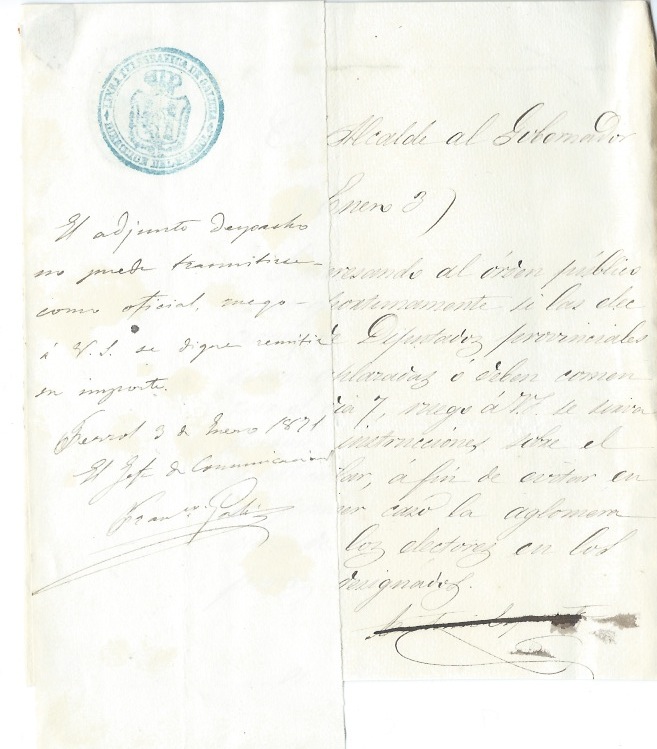 LINEA TELEGRAFICA DE GALICIA
DIRECCION DEL
El adjunto despacho
no puede transmitirse
como oficial, ruego
á V.S. se digne remitir
su importe.
Ferrol 3 de Enero 1871
El Gefe de Comunicacion
Alcalde al Gobernador
Enero 3)
resando al órden público
portunamente si las elec
Diputados provinciales
plazadas o deben comen
ia 7, ruego á V.S. se sirva
instrucciones sobre el
lar, á fin de evitar en
er caso la aglomera
los electores en los
designados.